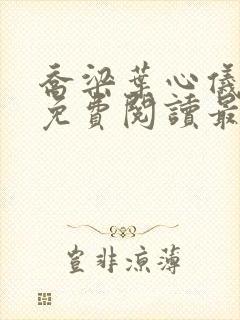 喬梁葉心儀
免費閱讀最
豈非涼薄